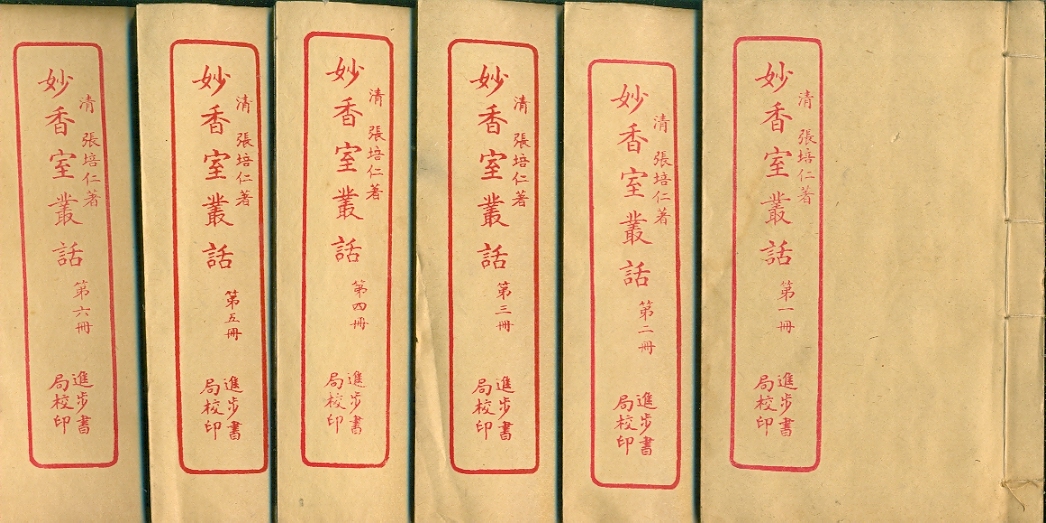 清 張培仁著
妙香室叢話
第一冊
進步書
局校印
清 張培仁著
妙香室叢話
第二冊
進步書
局校印
清 張培仁著
妙香室叢話
第三冊
進步書
局校印
清 張培仁著
妙香室叢話
第四冊
進步書
局校印
清 張培仁著
妙香室叢話
第五冊
進步書
局校印
清 張培仁著
妙香室叢話
第六冊
進步書
局校印